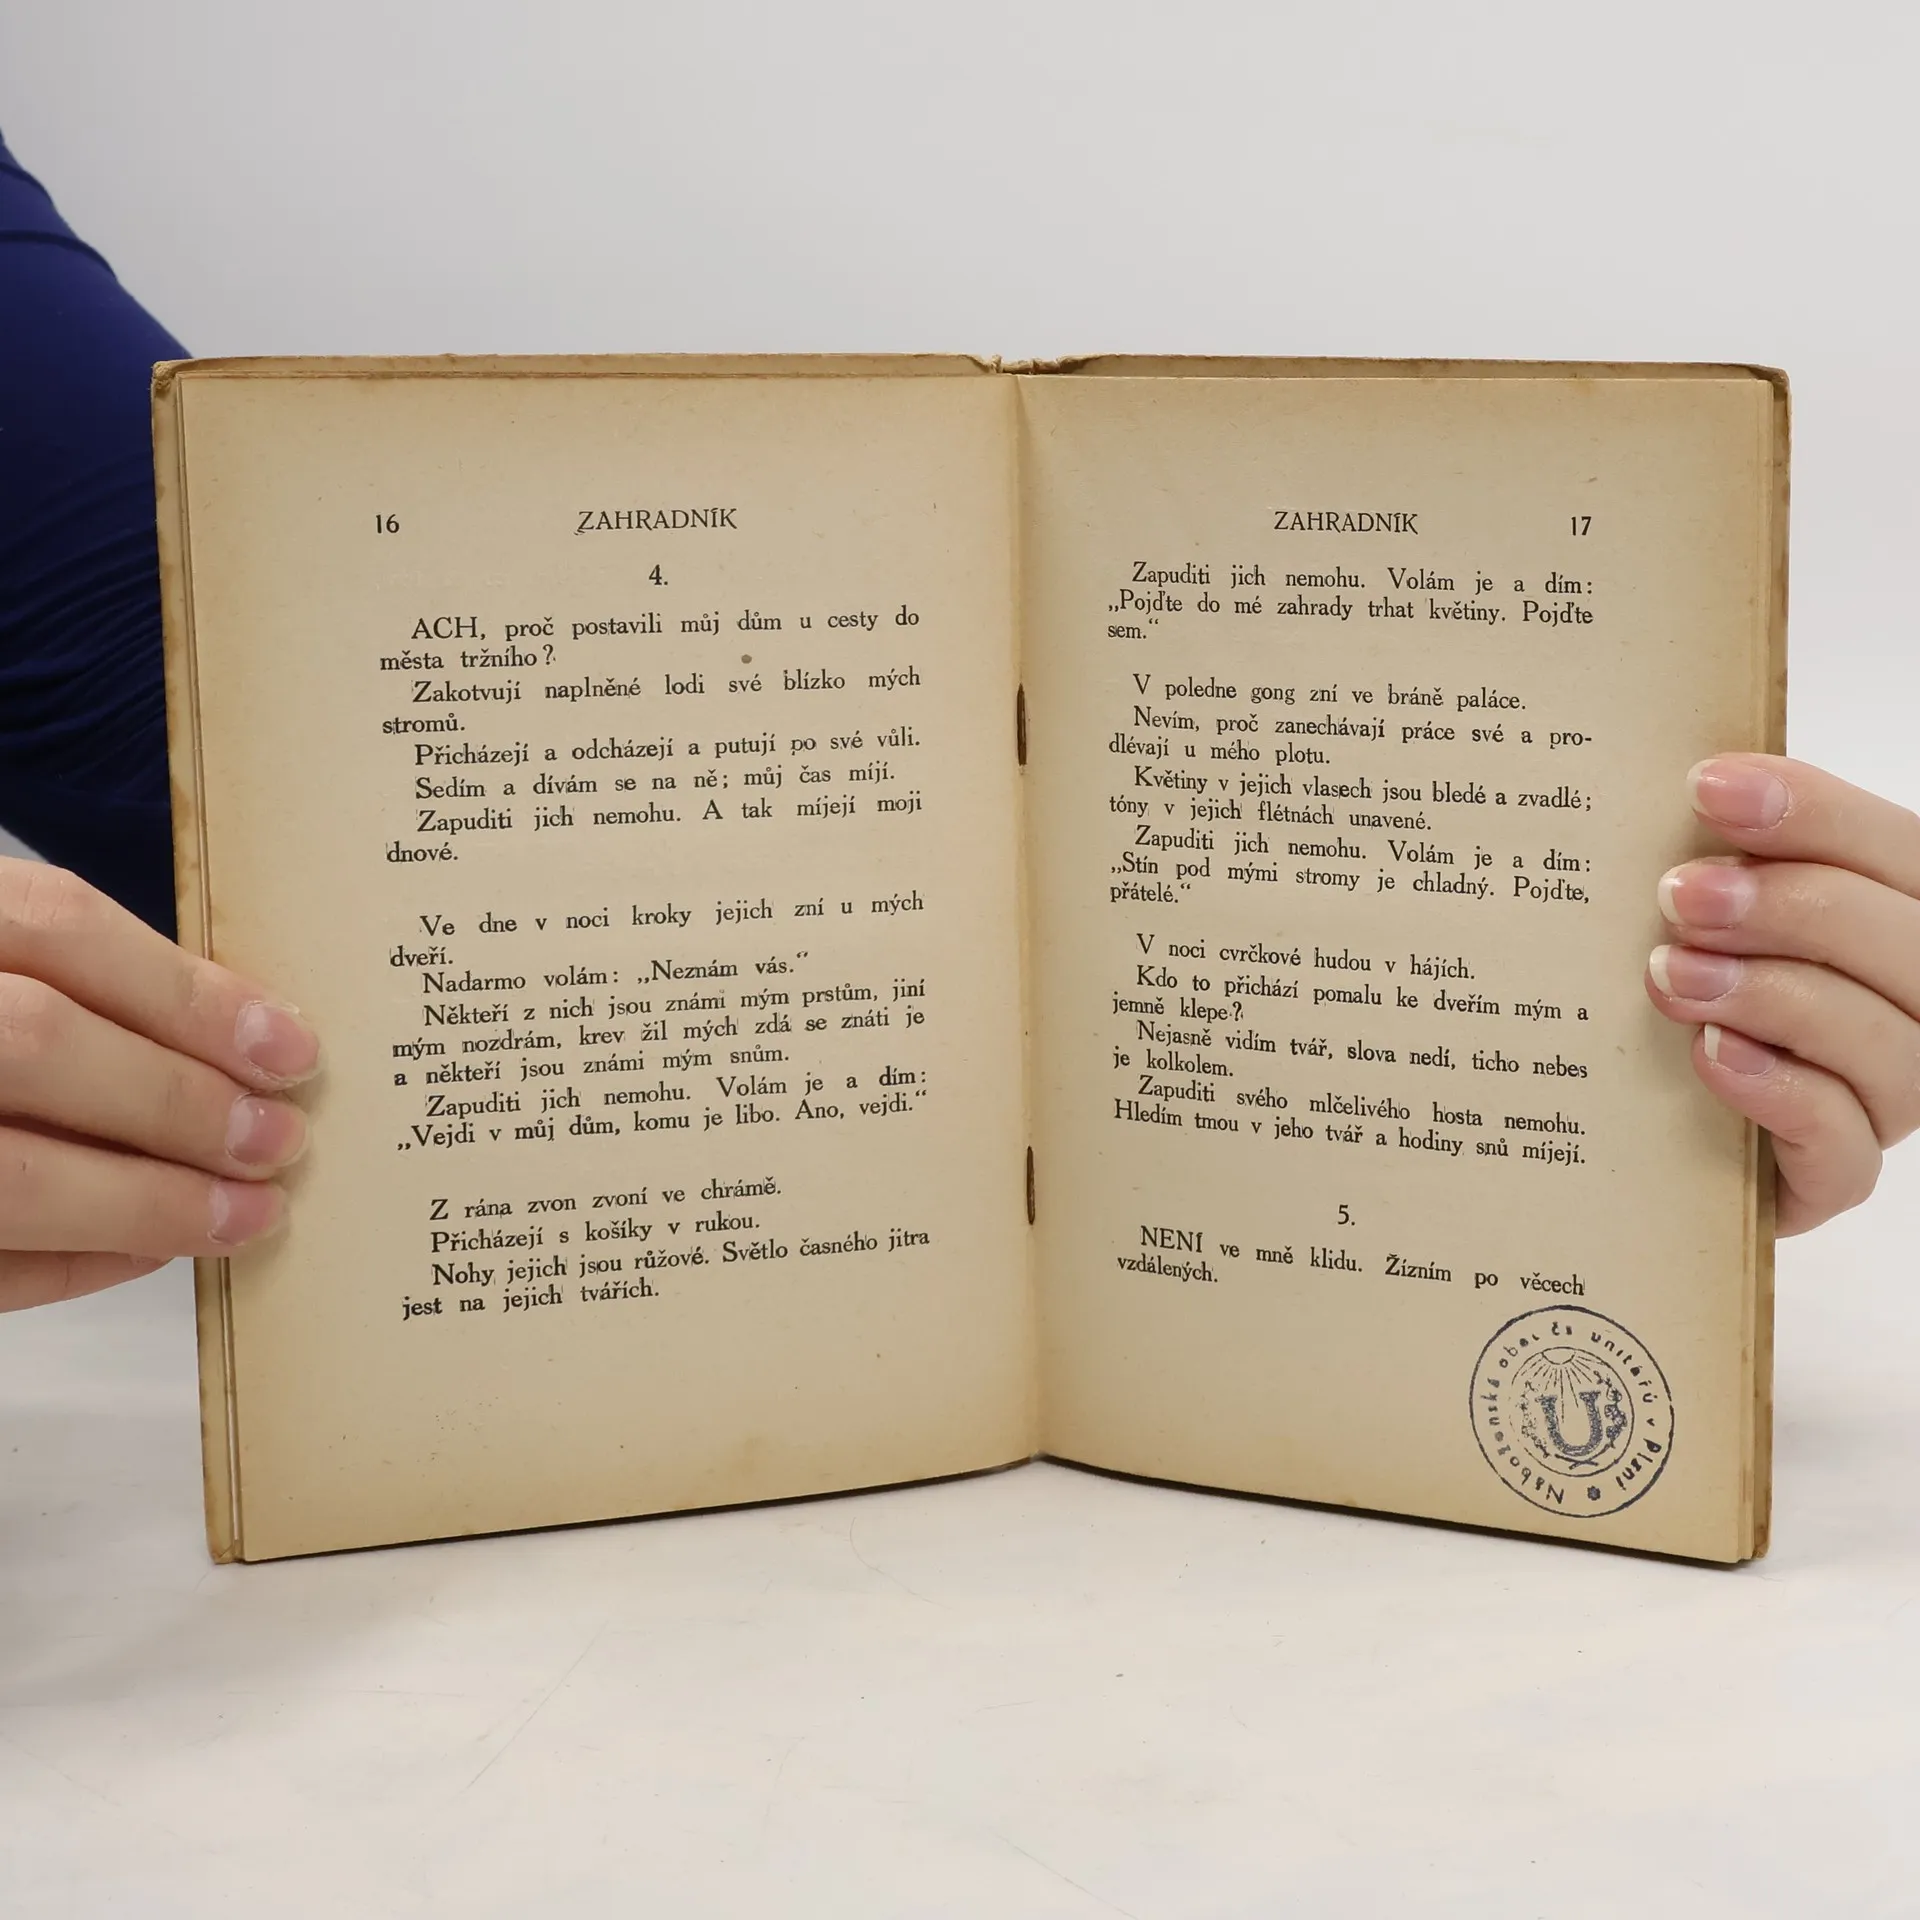 16 ZAHRADNÍK
4.
ACH, proč postavili můj dům u cesty do
města tržního?
Zakotvují naplněné lodi své blízko mých
stromů.
Přicházejí a odcházejí a putují po své vůli.
Sedím a dívám se na ně; můj čas míjí.
Zapuditi jich nemohu. A tak míjejí moji
dnové.
Ve dne v noci kroky jejich zní u mých
dveří.
Nadarmo volám: „Neznám vás.“
Někteří z nich jsou známi mým prstům, jiní
mým nozdrám, krev žil mých zdá se znáti je
a někteří jsou známi mým snům.
Zapuditi jich nemohu. Volám je a dím:
„Vejdi v můj dům, komu je libo. Ano, vejdi.“
Z rána zvon zvoní ve chrámě.
Přicházejí s košíky v rukou.
Nohy jejich jsou růžové. Světlo časného jitra
jest na jejich tvářích.
ZAHRADNÍK 17
Zapuditi jich nemohu. Volám je a dím:
„Pojďte do mé zahrady trhat květiny. Pojďte
sem.“
V poledne gong zní ve bráně paláce.
Nevím, proč zanechávají práce své a pro-
dlévají u mého plotu.
Květiny v jejich vlasech jsou bledé a zvadlé;
tóny v jejich flétnách unavené.
Zapuditi jich nemohu. Volám je a dím:
„Stín pod mými stromy je chladný. Pojďte,
přátelé.“
V noci cvrčkové hudou v hájích.
Kdo to přichází pomalu ke dveřím mým a
jemně klepe?
Nejasně vidím tvář, slova nedí, ticho nebes
je kolkolem.
Zapuditi svého mlčelivého hosta nemohu.
Hledím tmou v jeho tvář a hodiny snů míjejí.
5.
NENÍ ve mně klidu. Žízním po věcech
vzdálených.
Náboženská obec čs unitářů v Plzni
U